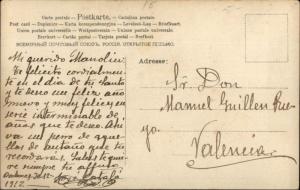 Carte postale — Postkarte. — Cartolina postale
Post card — Dopisnice — Karta korespondencyjna — Levelező-Lap — Briefkaart
Union postale universelle — Weltpostverein — Unione postale universale
Brevkort — Cartão postal — Tarjeta postal — Brefkort
ВСЕМІРНЫЙ ПОЧТОВЫЙ СОЮЗЪ. РОССІЯ. ОТКРЫТОЕ ПИСЬМО.
Mi querido Manolin:
Te felicito cordialmente
en el dia de tu Santo
y te deseo un feliz año
nuevo y muy felices en
serie interminable de
años que te deseo. Ahi va
un perro de aque-
llos de antaño que tu
recordaras. Sabes te quie-
re siempre tu affmo.
1912
Adresse:
Sr. Don
Manuel Guillen
Valencia.